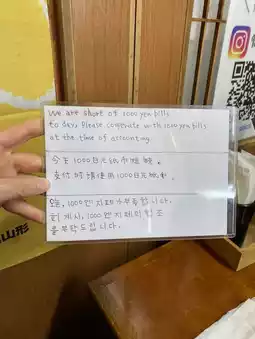 We are short of 1000 yen bills
to day, Please cooperate with 1000 yen bills
at the time of accounting.
今天1000日元紙巾短缺。
支付时请使用1000日元纸
오늘, 1000엔 지폐가 부족합니다.
회계시, 1000엔 지폐의 협조
를 부탁드립니다.
山形